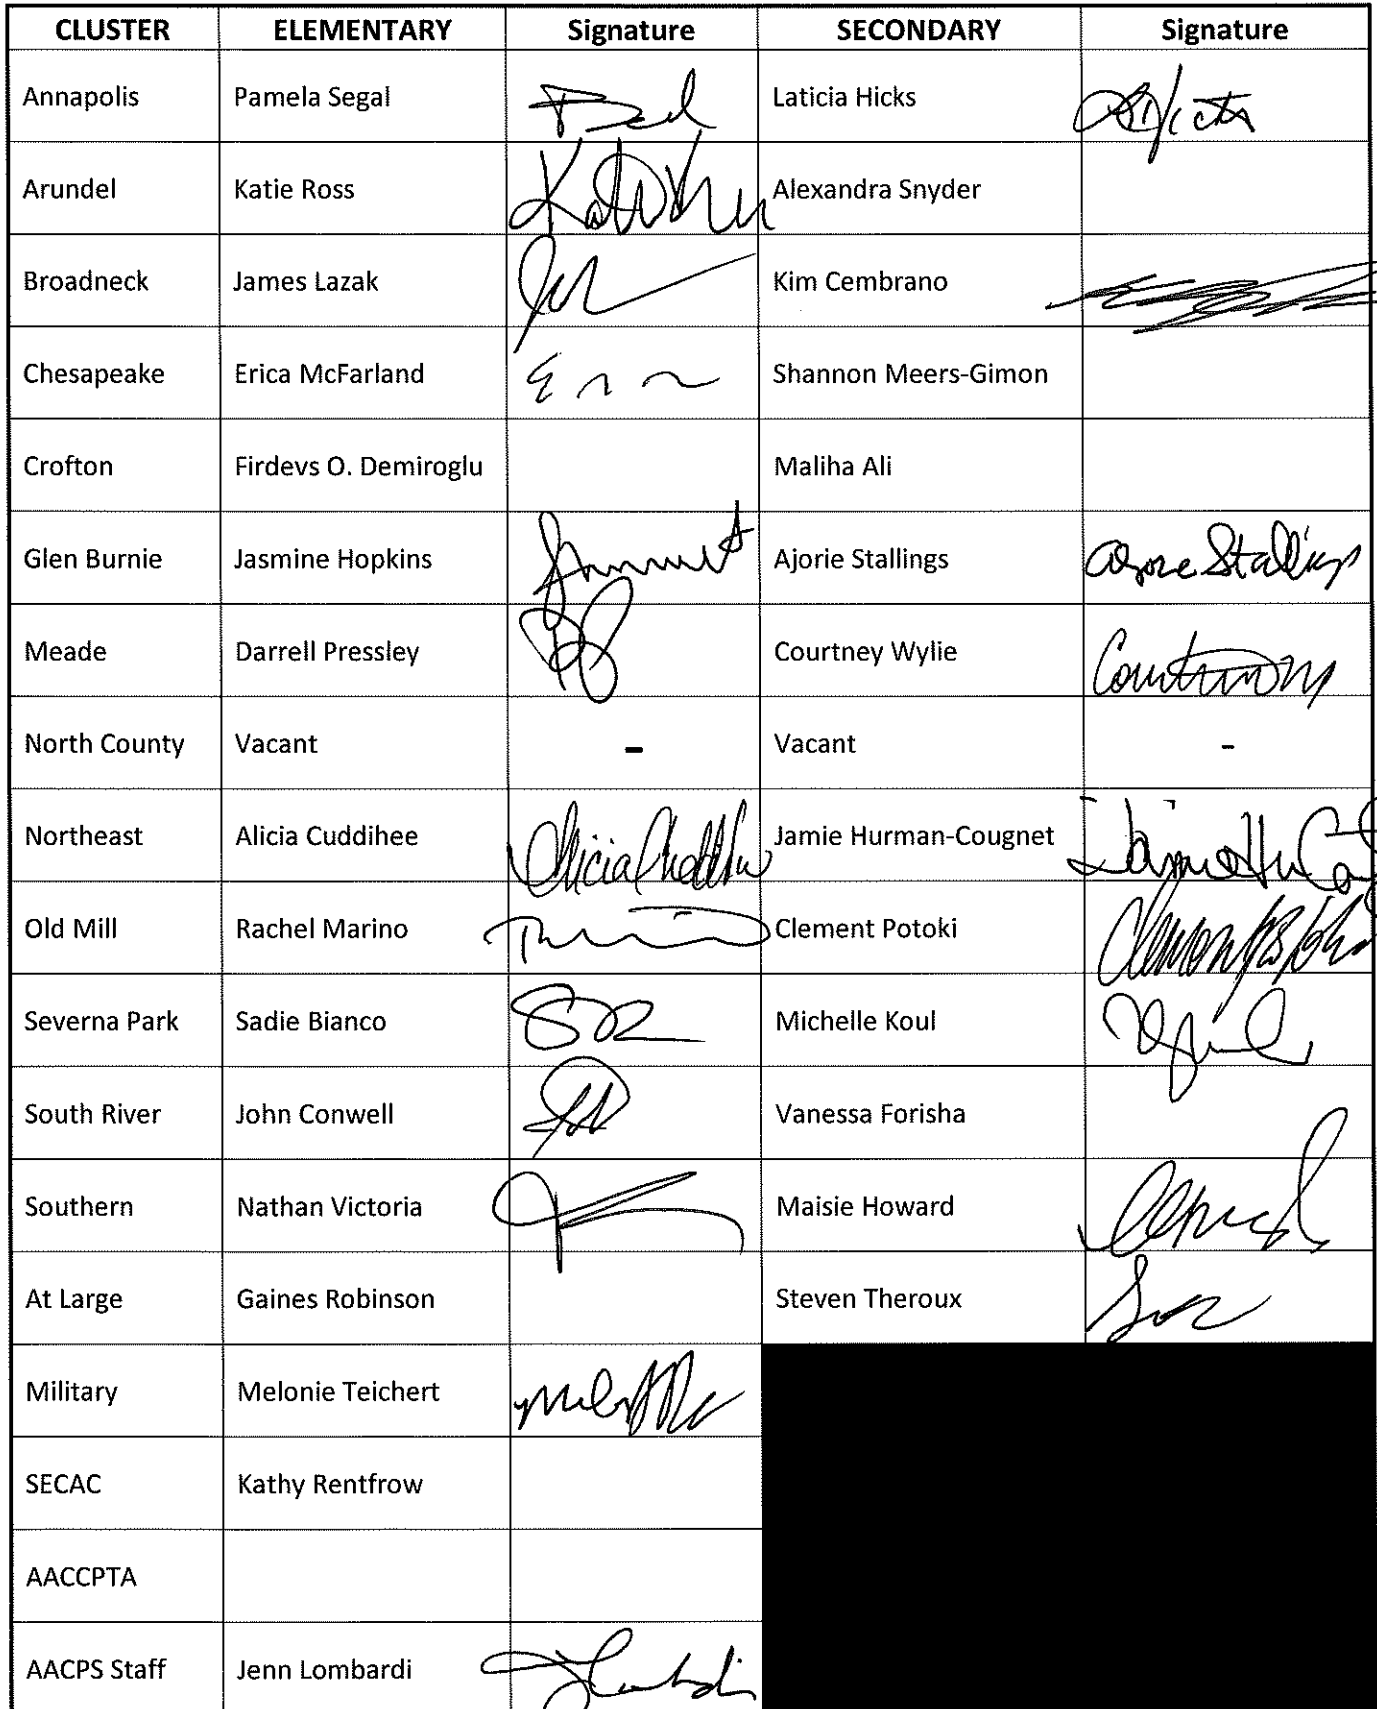 CLUSTER ELEMENTARY Signature SECONDARY Signature
Annapolis Pamela Segal Laticia Hicks
Arundel Katie Ross Alexandra Snyder
Broadneck James Lazak Kim Cembrano
Chesapeake Erica McFarland Shannon Meers-Gimon
Crofton Firdevs O. Demiroglu Maliha Ali
Glen Burnie Jasmine Hopkins Ajorie Stallings Ajorie Stallings
Meade Darrell Pressley Courtney Wylie
North County Vacant - Vacant -
Northeast Alicia Cuddihee Alicia Cuddihee Jamie Hurman-Cougnet
Old Mill Rachel Marino Clement Potoki
Severna Park Sadie Bianco Michelle Koul
South River John Conwell Vanessa Forisha
Southern Nathan Victoria Maisie Howard
At Large Gaines Robinson Steven Theroux
Military Melonie Teichert
SECAC Kathy Rentfrow
AACCPTA
AACPS Staff Jenn Lombardi